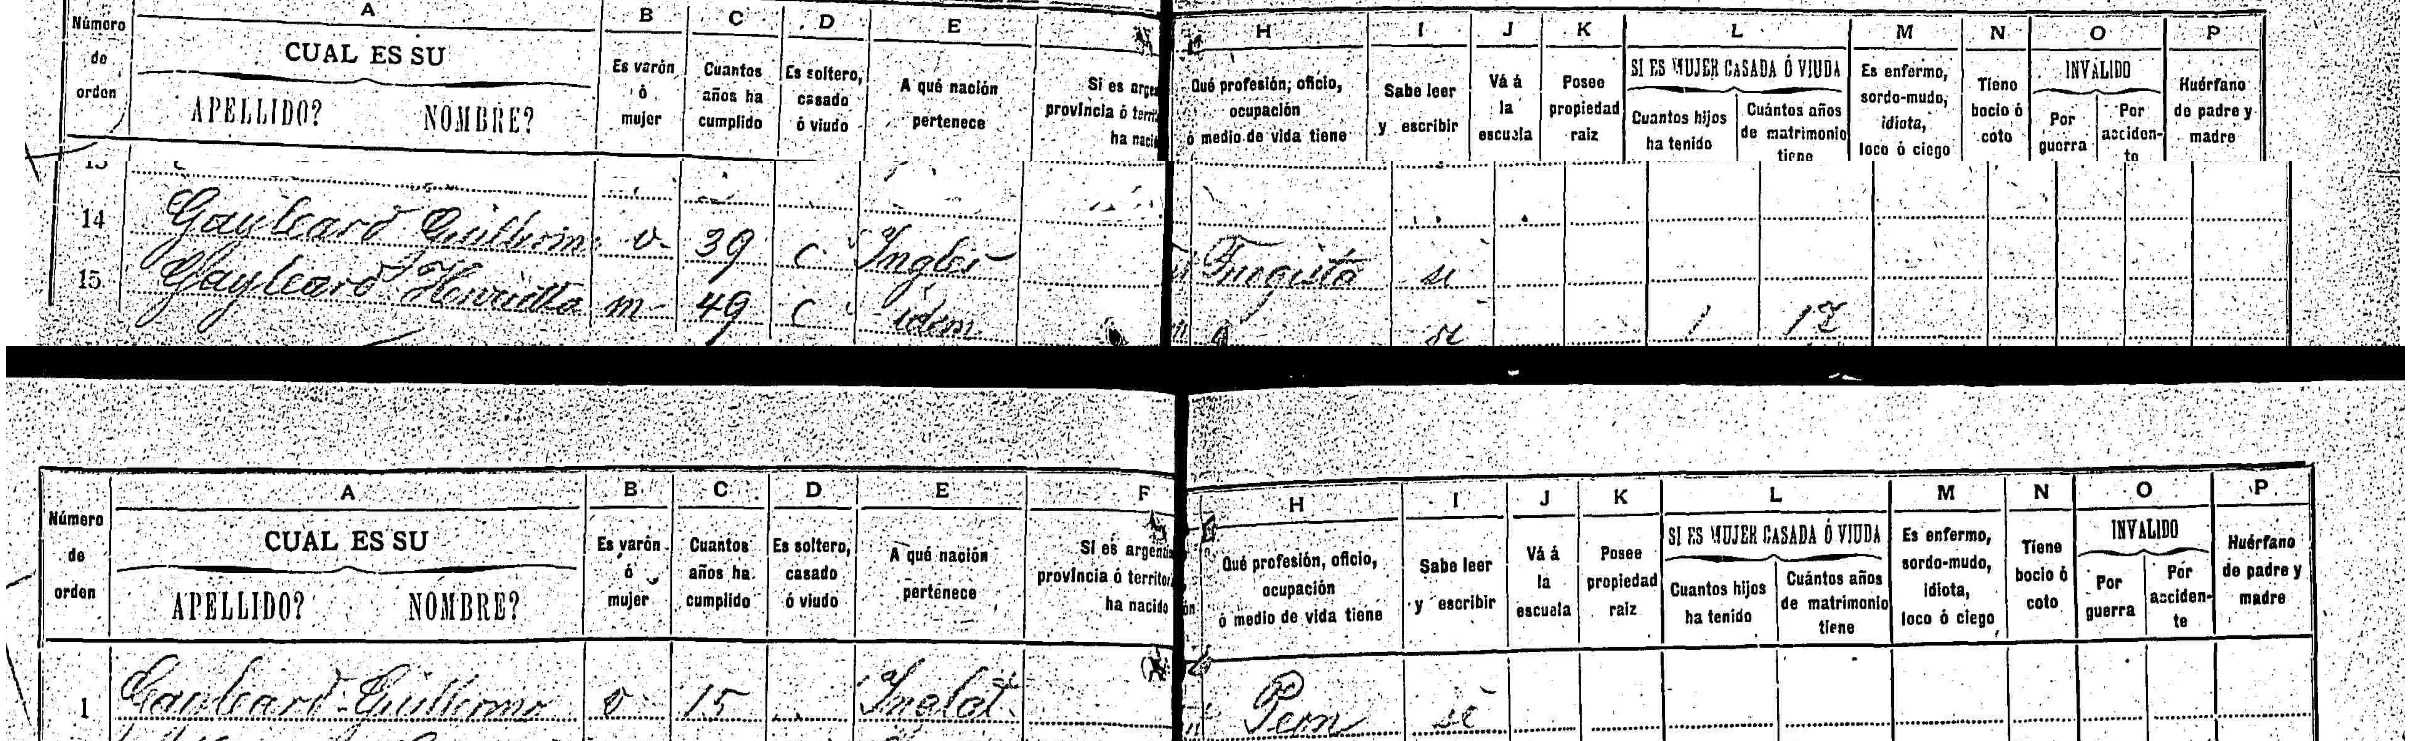 A B C D E H I J K L M N O P
Número de orden
CUAL ES SU
APELLIDO? NOMBRE?
Es varón ó mujer
Cuantos años ha cumplido
Es soltero, casado ó viudo
A qué nación pertenece
Si es
provincia ó
ha
Qué profesión, oficio, ocupación ó medio de vida tiene
Sabe leer y escribir
Vá á la escuela
Posee propiedad raiz
SI ES MUJER CASADA Ó VIUDA
Cuantos hijos ha tenido
Cuántos años de matrimonio tiene
Es enfermo, sordo-mudo, idiota, loco ó ciego
Tiene bocio ó coto
INVÁLIDO
Por guerra
Por acciden-te
Huérfano de padre y madre
14 Gayleard v 39 c Ingles si
15 Gayleard Henrietta m 49 c idem si 1 17
A B C D E F H I J K L M N O P
Número de orden
CUAL ES SU
APELLIDO? NOMBRE?
Es varón ó mujer
Cuantos años ha cumplido
Es soltero, casado ó viudo
A qué nación pertenece
Si es
provincia ó
ha nacido
Qué profesión, oficio, ocupación ó medio de vida tiene
Sabe leer y escribir
Vá á la escuela
Posee propiedad raiz
SI ES MUJER CASADA Ó VIUDA
Cuantos hijos ha tenido
Cuántos años de matrimonio tiene
Es enfermo, sordo-mudo, idiota, loco ó ciego
Tiene bocio ó coto
INVALIDO
Por guerra
Por acciden-te
Huérfano de padre y madre
1 Gayleard Guillermo v 15 Inglat. Peon si